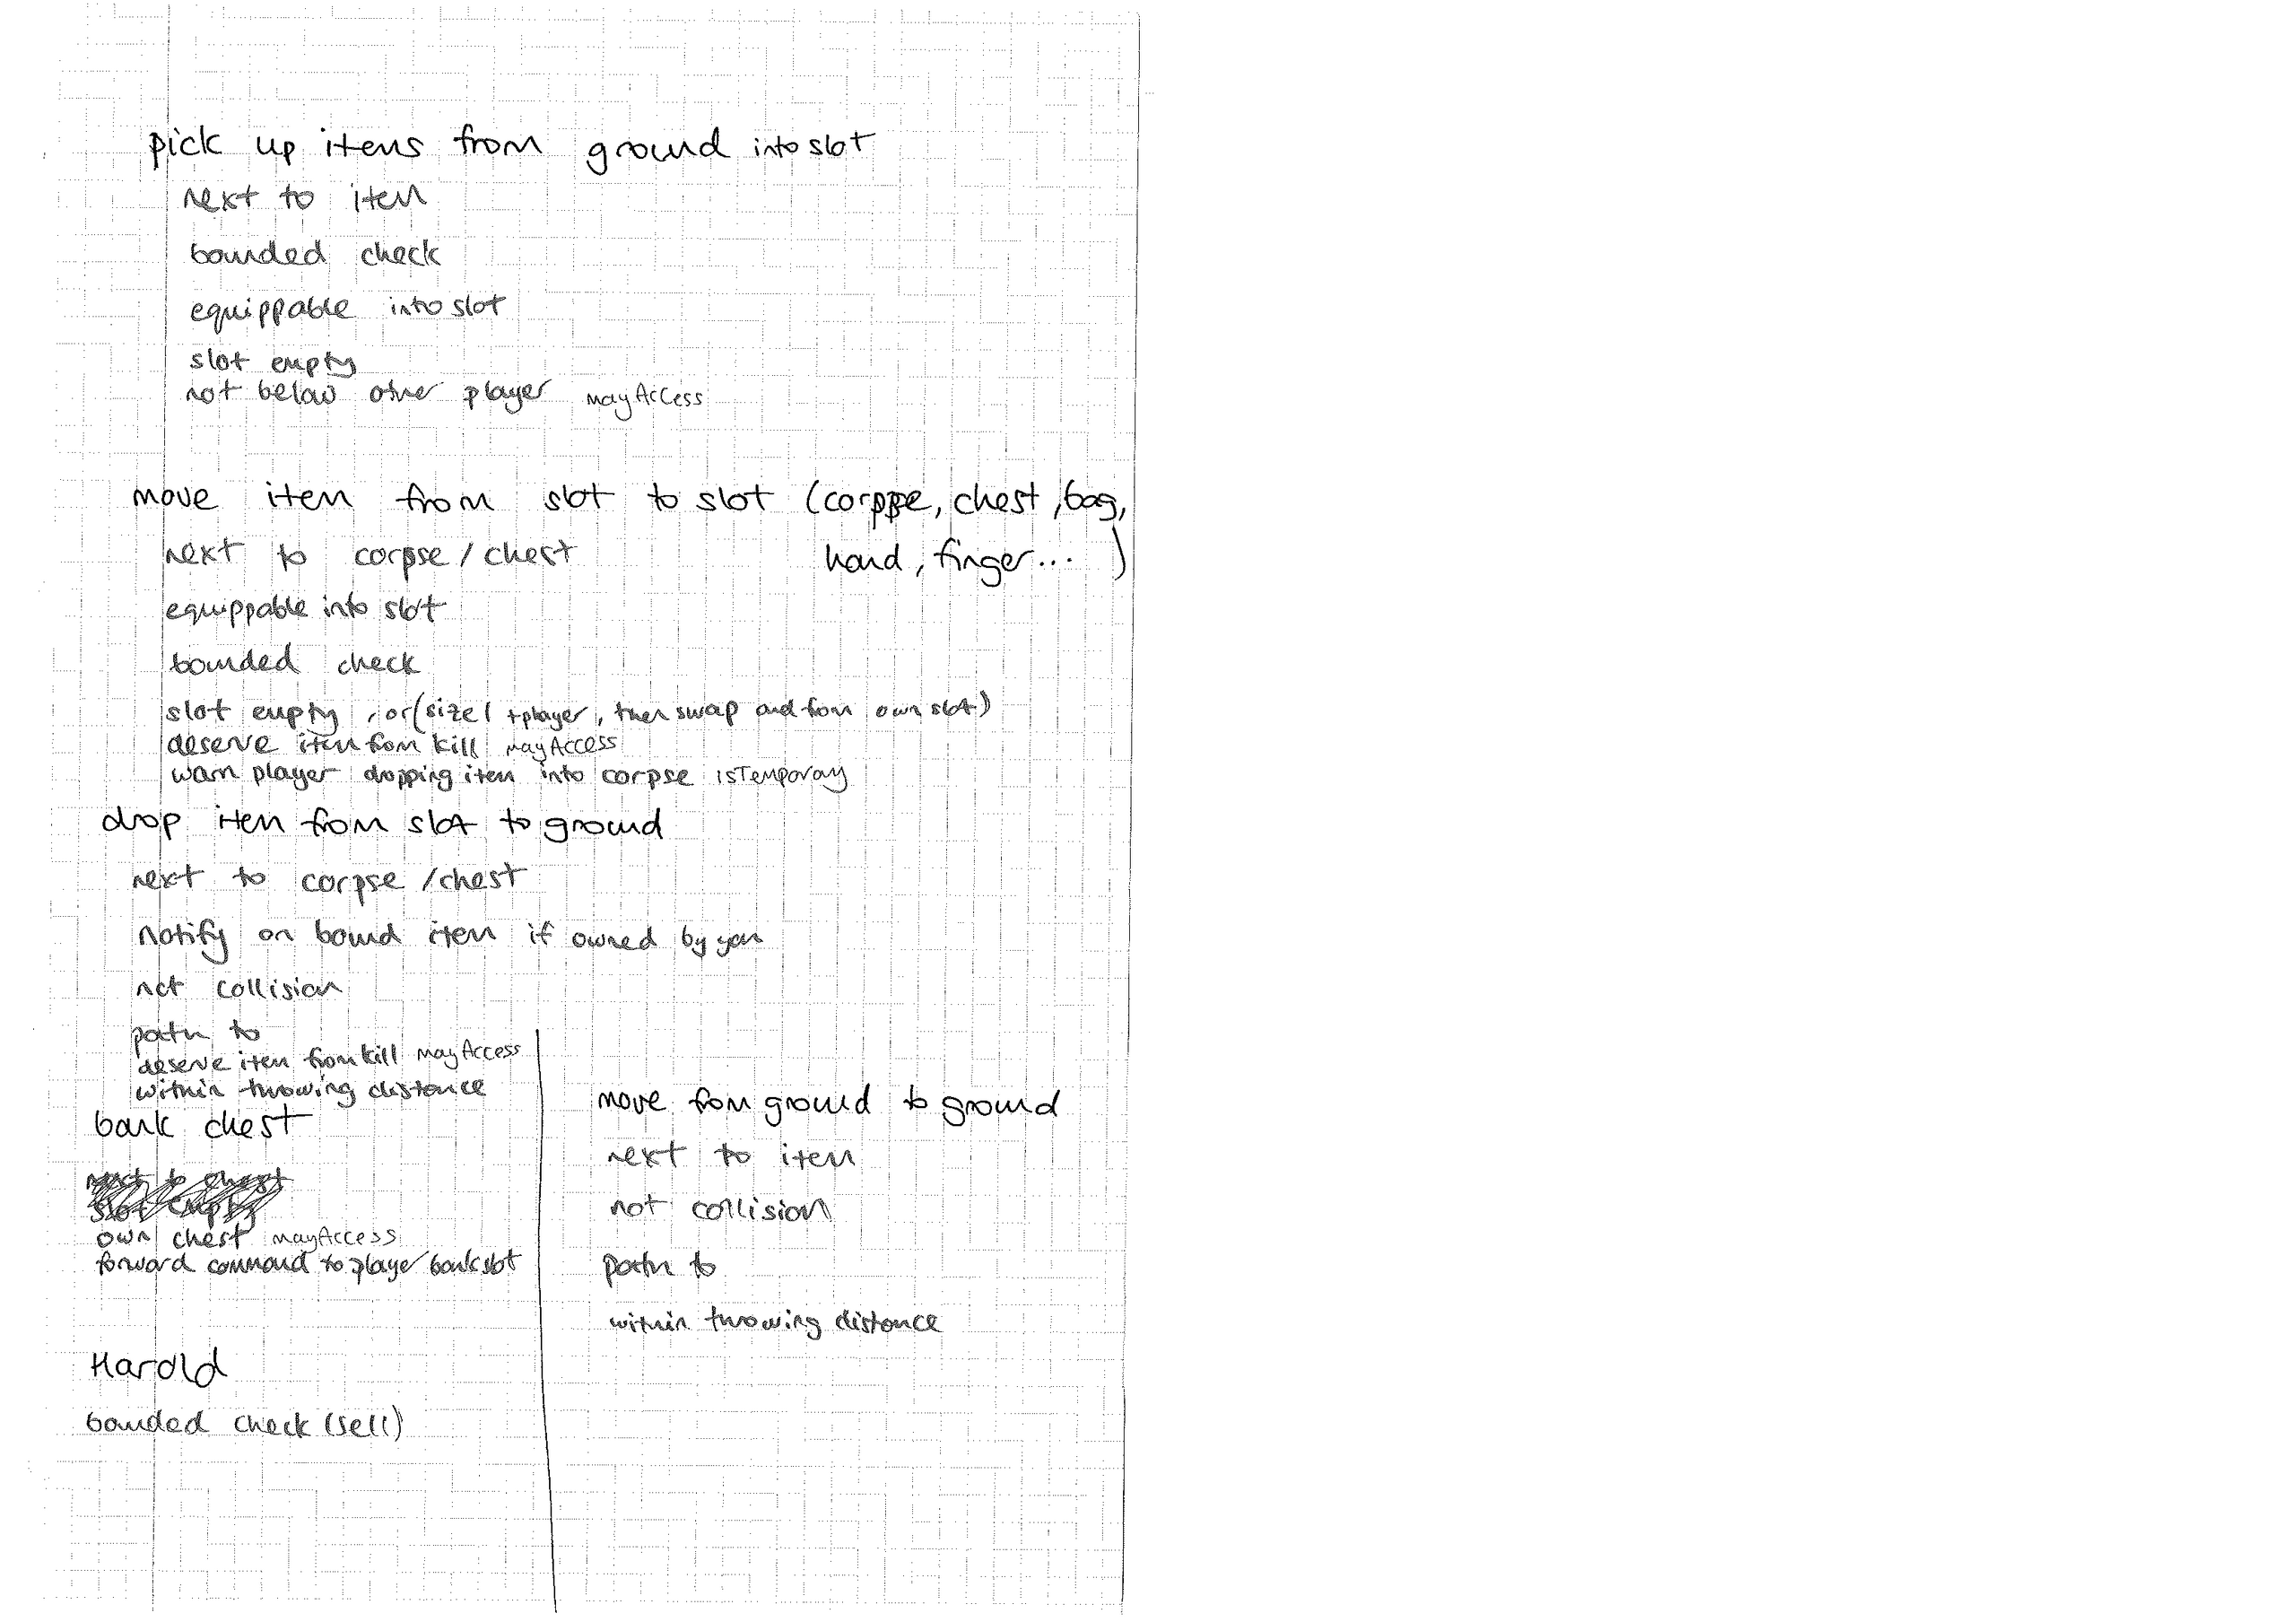 pick up items from ground into slot
next to item
bounded check
equippable into slot
slot empty
not below other player mayAccess
move item from slot to slot (corpse, chest, bag,
hand, finger... )
next to corpse / chest
equippable into slot
bounded check
slot empty, or (size 1 + player, then swap and from own slot)
deserve item from kill mayAccess
warn player dropping item into corpse isTemporary
drop item from slot to ground
next to corpse / chest
notify on bound item if owned by you
not collision
path to
deserve item from kill mayAccess
within throwing distance
bank chest
next to chest
slot empty
own chest mayAccess
forward command to player bank slot
Harold
bounded check (sell)
move from ground to ground
next to item
not collision
path to
within throwing distance